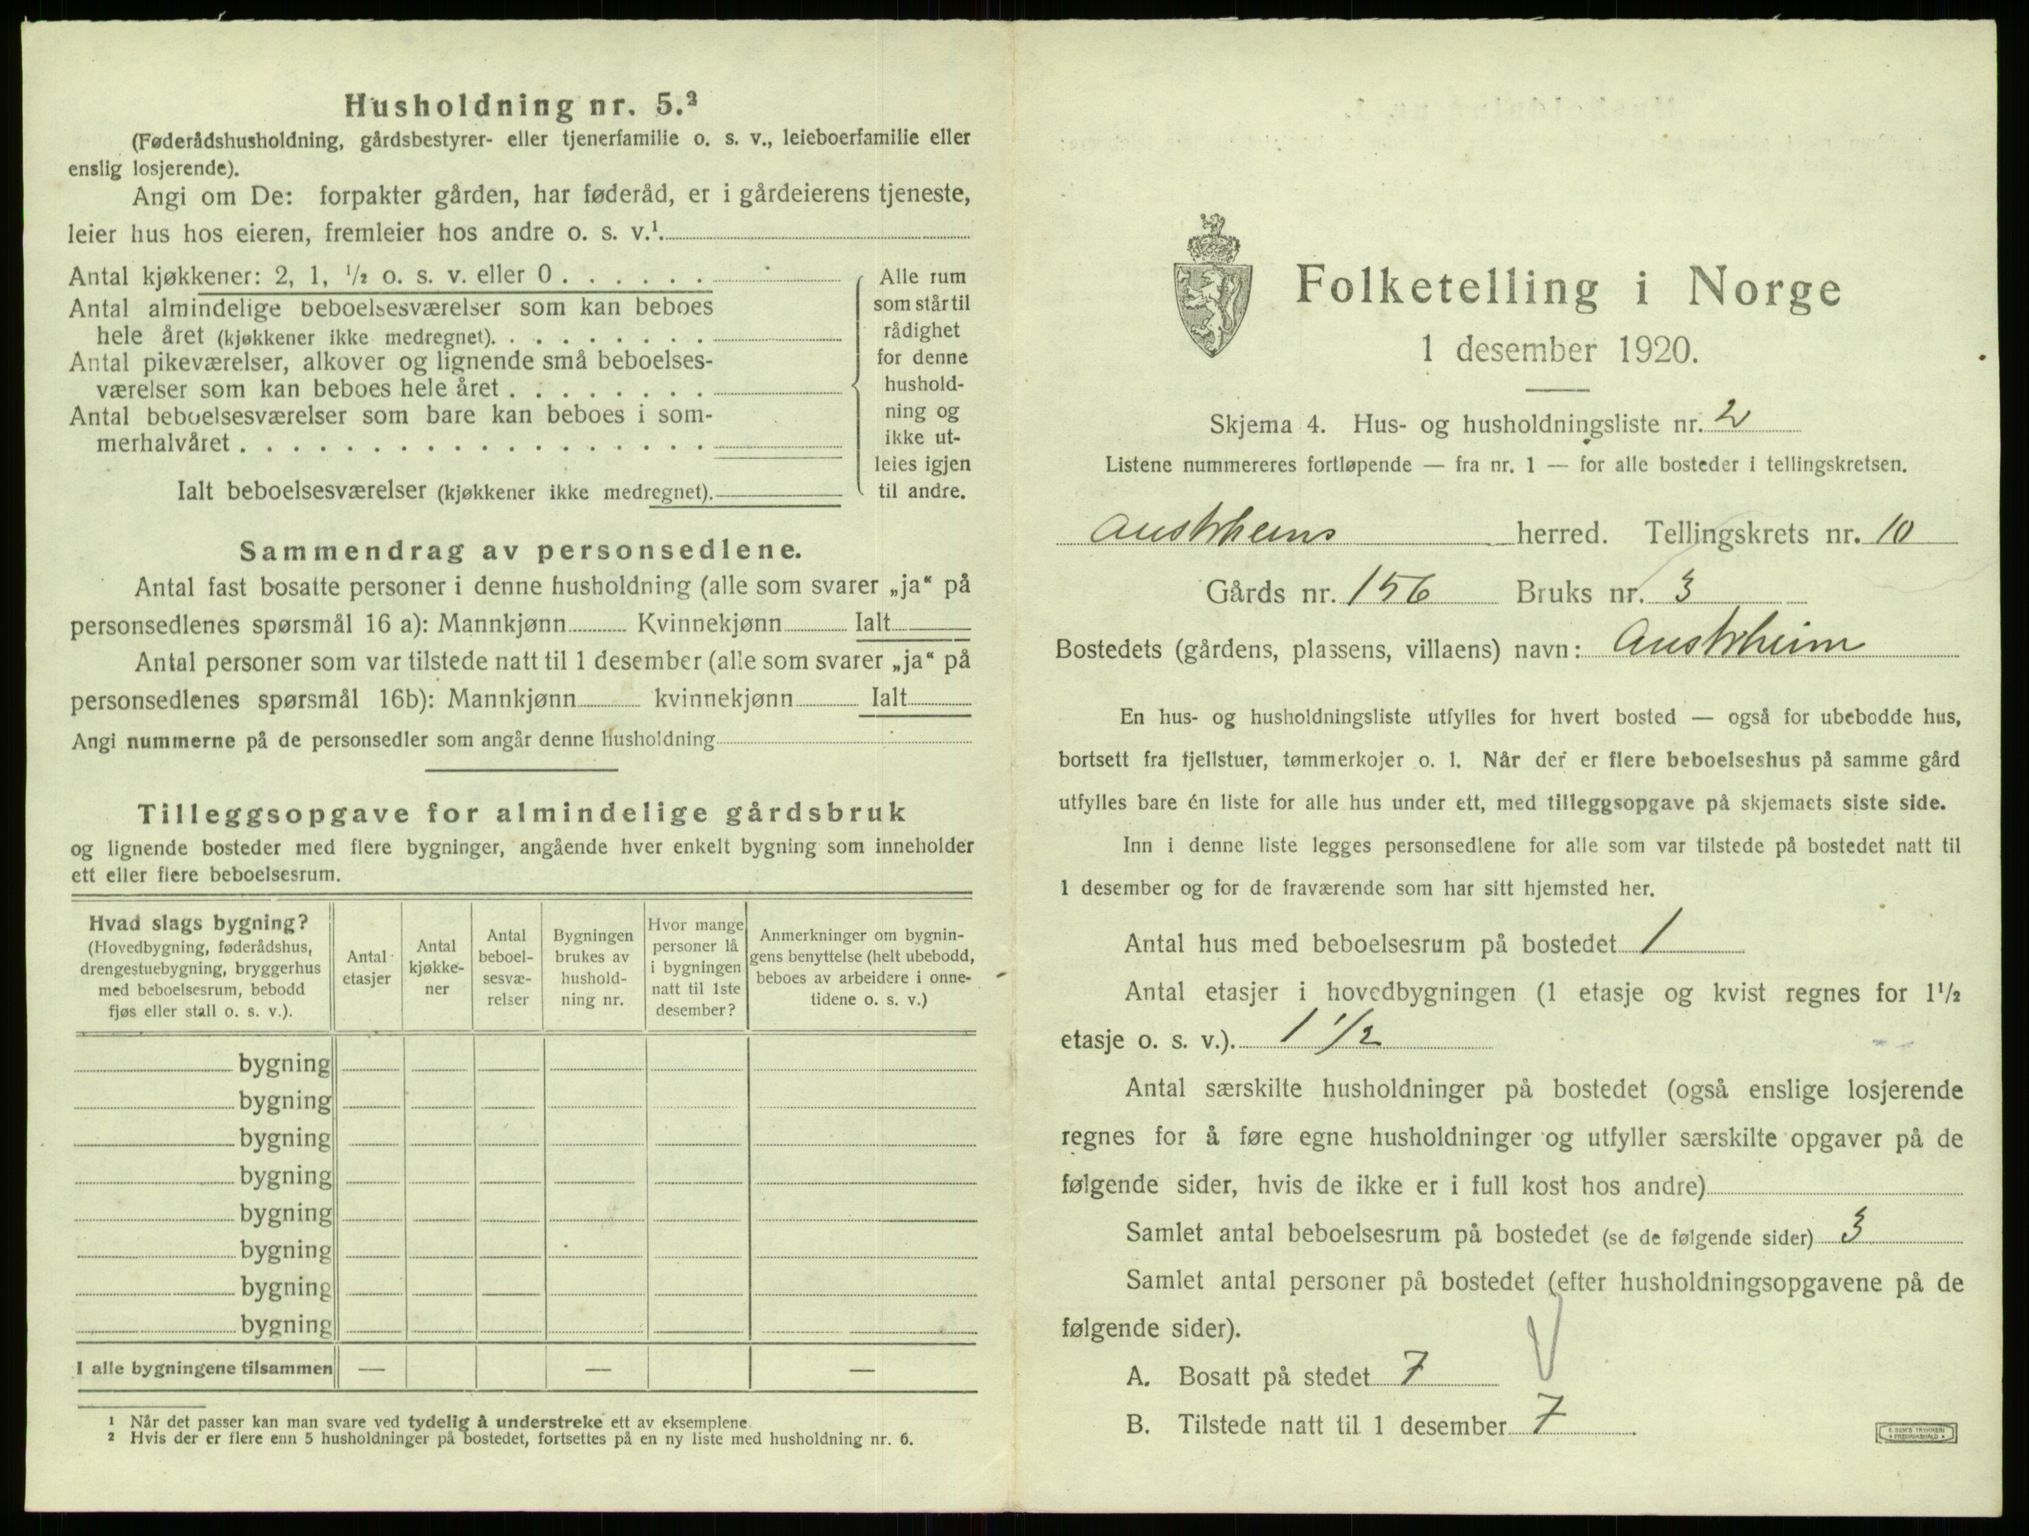 Husholdning nr. 5.²
(Føderådshusholdning, gårdsbestyrer- eller tjenerfamilie o. s. v., leieboerfamilie eller
enslig losjerende).
Angi om De: forpakter gården, har føderåd, er i gårdeierens tjeneste,
leier hus hos eieren, fremleier hos andre o. s. v.¹
Antal kjøkkener: 2, 1, ½ o. s. v. eller 0 . . . . . .
Antal almindelige beboelsesværelser som kan beboes
hele året (kjøkkener ikke medregnet). . . . . . . . .
Antal pikeværelser, alkover og lignende små beboelses-
værelser som kan beboes hele året . . . . . . . .
Antal beboelsesværelser som bare kan beboes i som-
merhalvåret . . . . . . . . . . . . . . . . . .
Ialt beboelsesværelser (kjøkkener ikke medregnet).
Alle rum
som står til
rådighet
for denne
hushold-
ning og
ikke ut-
leies igjen
til andre.
Sammendrag av personsedlene.
Antal fast bosatte personer i denne husholdning (alle som svarer „ja“ på
personsedlenes spørsmål 16 a): Mannkjønn Kvinnekjønn Ialt
Antal personer som var tilstede natt til 1 desember (alle som svarer „ja“ på
personsedlenes spørsmål 16b): Mannkjønn kvinnekjønn Ialt
Angi nummerne på de personsedler som angår denne husholdning
Tilleggsopgave for almindelige gårdsbruk
og lignende bosteder med flere bygninger, angående hver enkelt bygning som inneholder
ett eller flere beboelsesrum.
Hvad slags bygning?
(Hovedbygning, føderådshus,
drengestuebygning, bryggerhus
med beboelsesrum, bebodd
fjøs eller stall o. s. v.).
Antal
etasjer
Antal
kjøkke-
ner
Antal
beboel-
sesvæ-
relser
Bygningen
brukes av
hushold-
ning nr.
Hvor mange
personer lå
i bygningen
natt til 1ste
desember?
Anmerkninger om bygnin-
gens benyttelse (helt ubebodd,
beboes av arbeidere i onne-
tidene o. s. v.)
bygning
bygning
bygning
bygning
bygning
bygning
bygning
bygning
I alle bygningene tilsammen — — —
¹ Når det passer kan man svare ved tydelig å understreke ett av eksemplene
² Hvis der er flere enn 5 husholdninger på bostedet, fortsettes på en ny liste med husholdning nr. 6.
Folketelling i Norge
1 desember 1920.
Skjema 4. Hus- og husholdningsliste nr. 2
Listene nummereres fortløpende — fra nr. 1 — for alle bosteder i tellingskretsen.
Austrheims herred. Tellingskrets nr. 10
Gårds nr. 156 Bruks nr. 3
Bostedets (gårdens, plassens, villaens) navn: Austrheim
En hus- og husholdningsliste utfylles for hvert bosted — også for ubebodde hus,
bortsett fra fjellstuer, tømmerkojer o. l. Når der er flere beboelseshus på samme gård
utfylles bare én liste for alle hus under ett, med tilleggsopgave på skjemaets siste side.
Inn i denne liste legges personsedlene for alle som var tilstede på bostedet natt til
1 desember og for de fraværende som har sitt hjemsted her.
Antal hus med beboelsesrum på bostedet 1
Antal etasjer i hovedbygningen (1 etasje og kvist regnes for 1½
etasje o. s. v.). 1 1/2
Antal særskilte husholdninger på bostedet (også enslige losjerende
regnes for å føre egne husholdninger og utfyller særskilte opgaver på de
følgende sider, hvis de ikke er i full kost hos andre)
Samlet antal beboelsesrum på bostedet (se de følgende sider) 3
Samlet antal personer på bostedet (efter husholdningsopgavene på de
følgende sider).
A. Bosatt på stedet 7
B. Tilstede natt til 1 desember 7